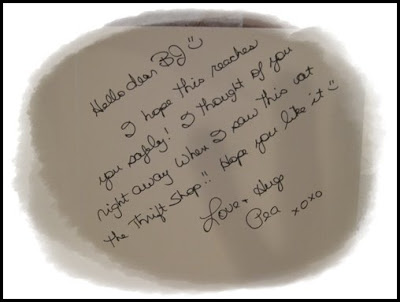 Hello dear BJ ☺
I hope this reaches
you safely! I thought of you
right away when I saw this cat
the Thrift Shop!! Hope you like it ☺
Love + Hugs
Pea xoxo